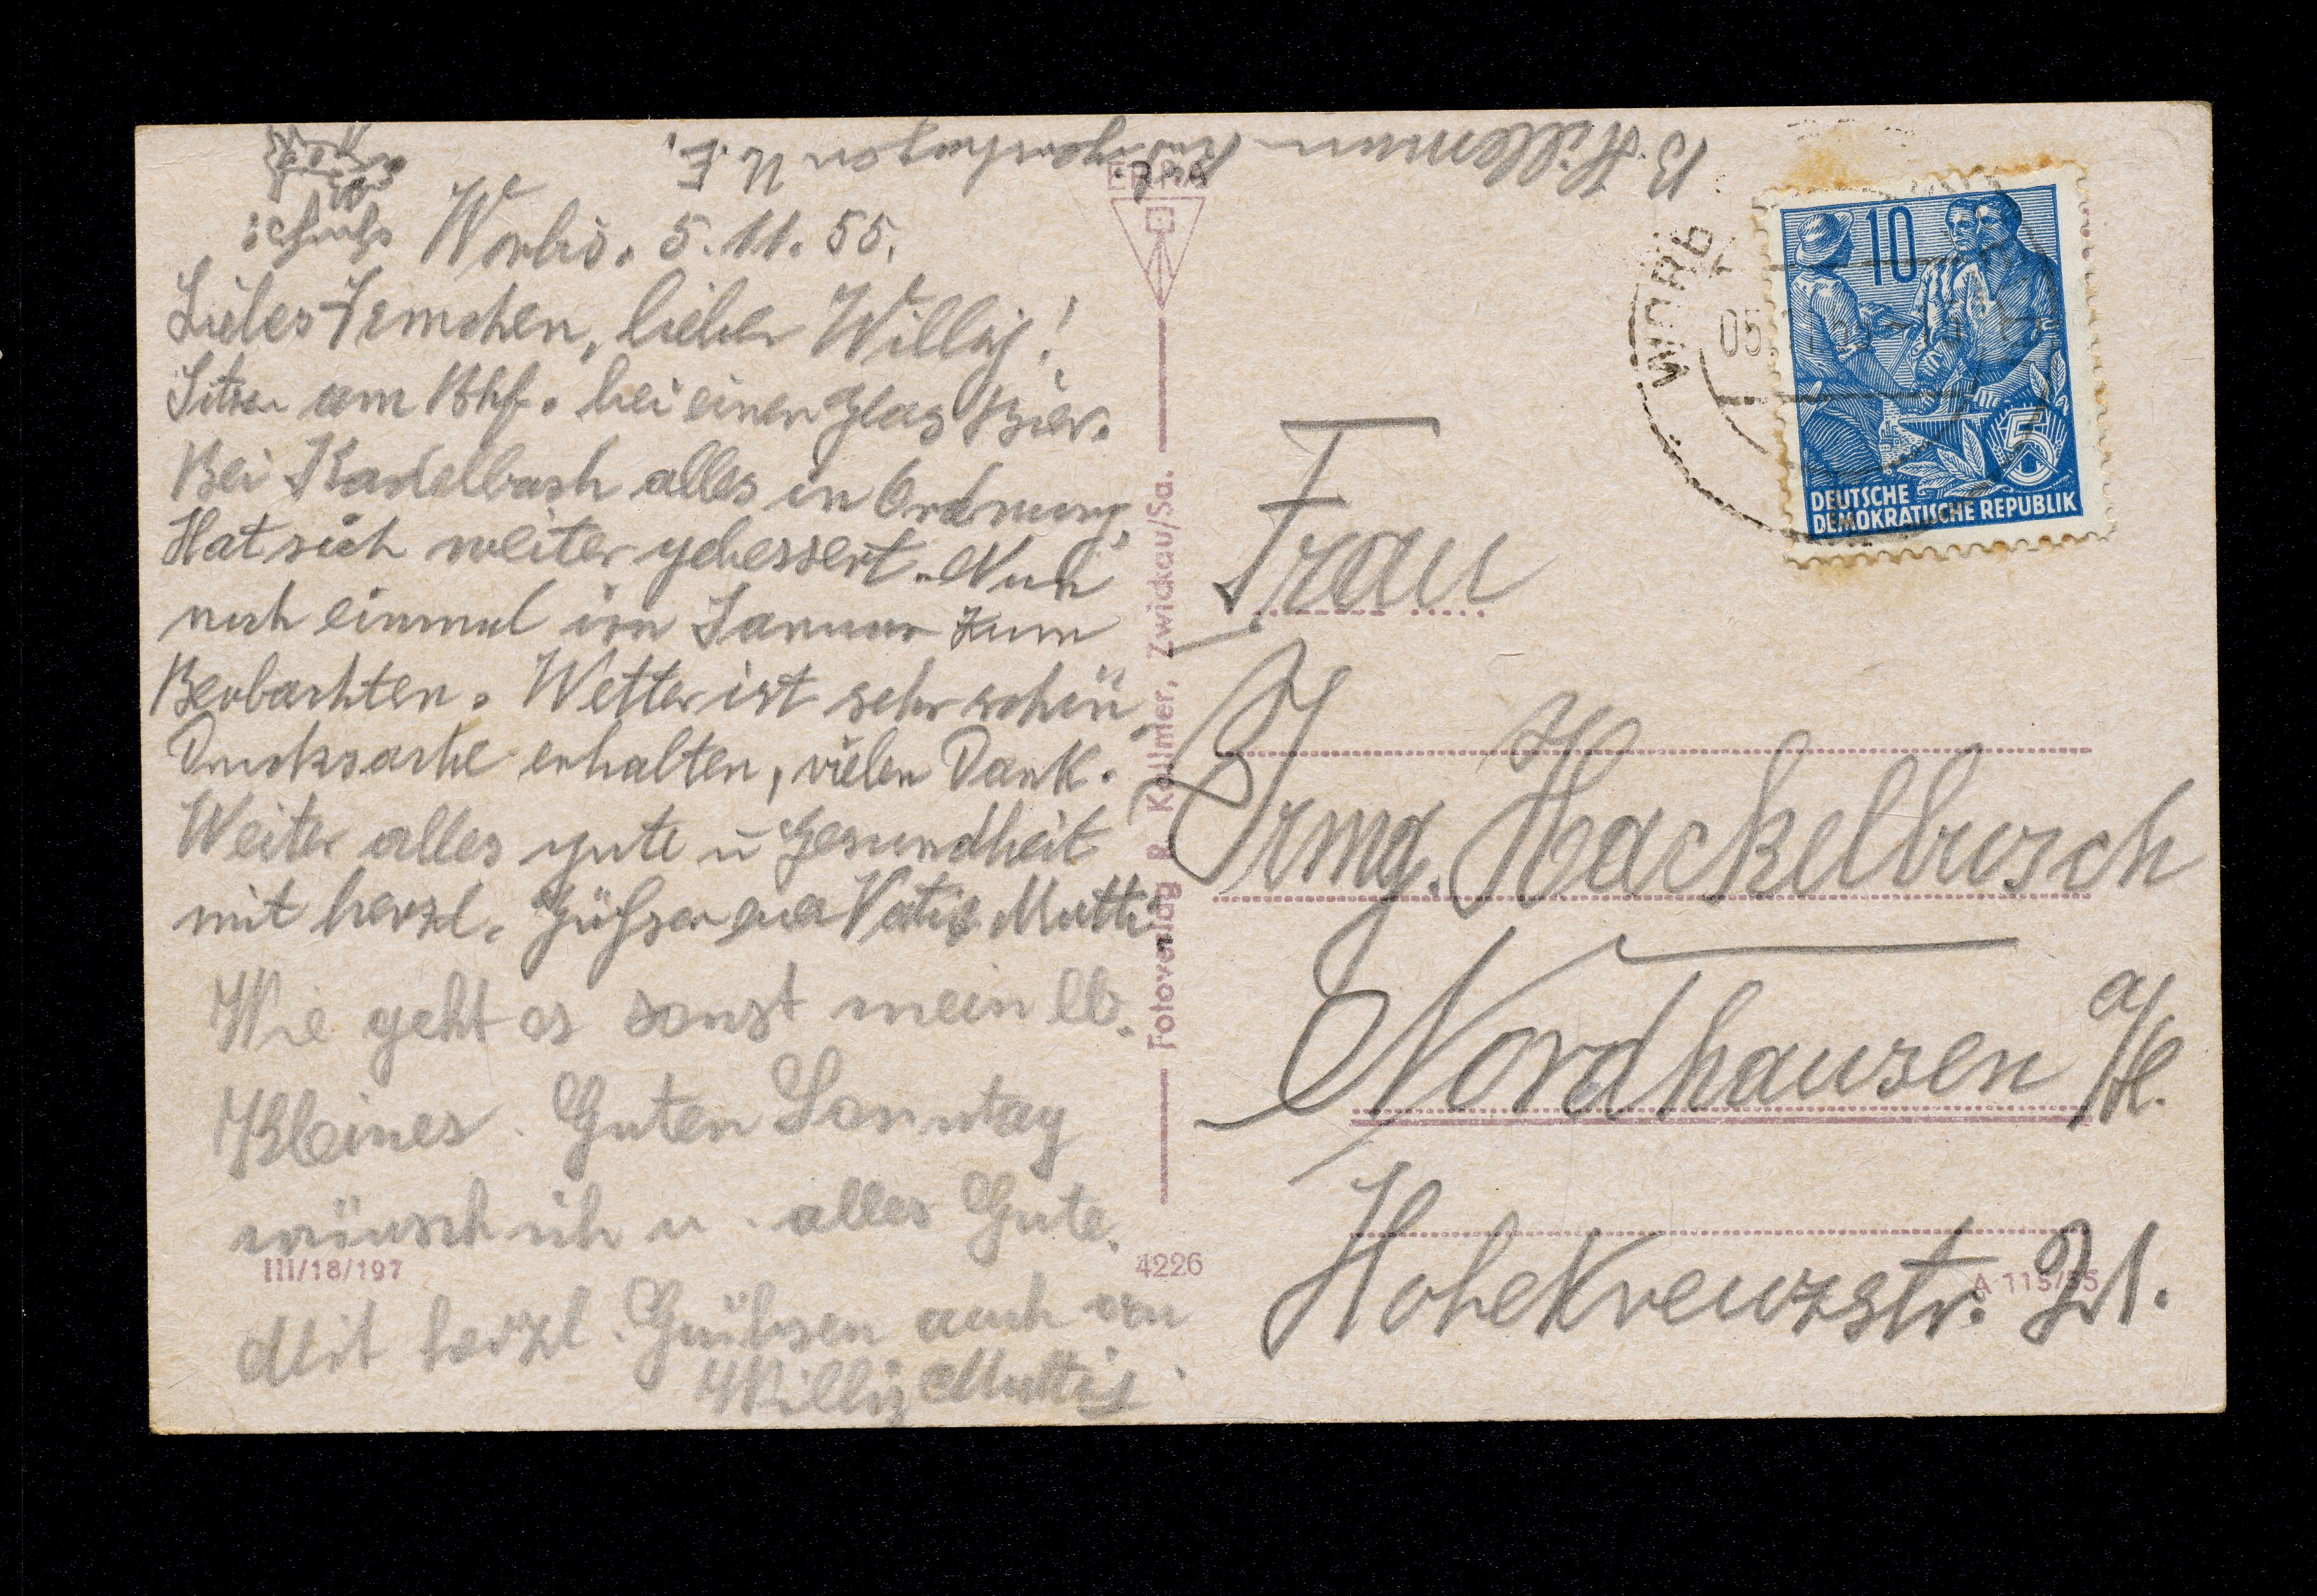 B. Hillemann
U. E.
Worbis. 5. 11. 55.
Liebes Irmchen, lieber Willij!
Sitzen am Bhf. bei einen Glas Bier.
Bei Kadelbach alles in Ordnung,
Hat sich weiter gebessert. Nun
noch einmal im Januar zum
Beobachten. Wetter ist sehr schön,
Drucksache erhalten, vielen Dank.
Weiter alles gute u Gesundheit
mit herzl. Güßsen euer Vati & Mutti
Wie geht es sonst mein lb.
Kleines. Guten Sonntag
wünsch ich u. alles Gute.
Mit herzl. Grüßsen auch von
Willij Mutti
ERRA
Fotoverlag R. Kallmer, Zwickau/Sa.
III/18/197
4226
A 115/55
WORB
05.
10
5
DEUTSCHE
DEMOKRATISCHE REPUBLIK
Frau
Irmg. Hackelbusch
Nordhausen a/H.
Hohekreuzstr. 21.